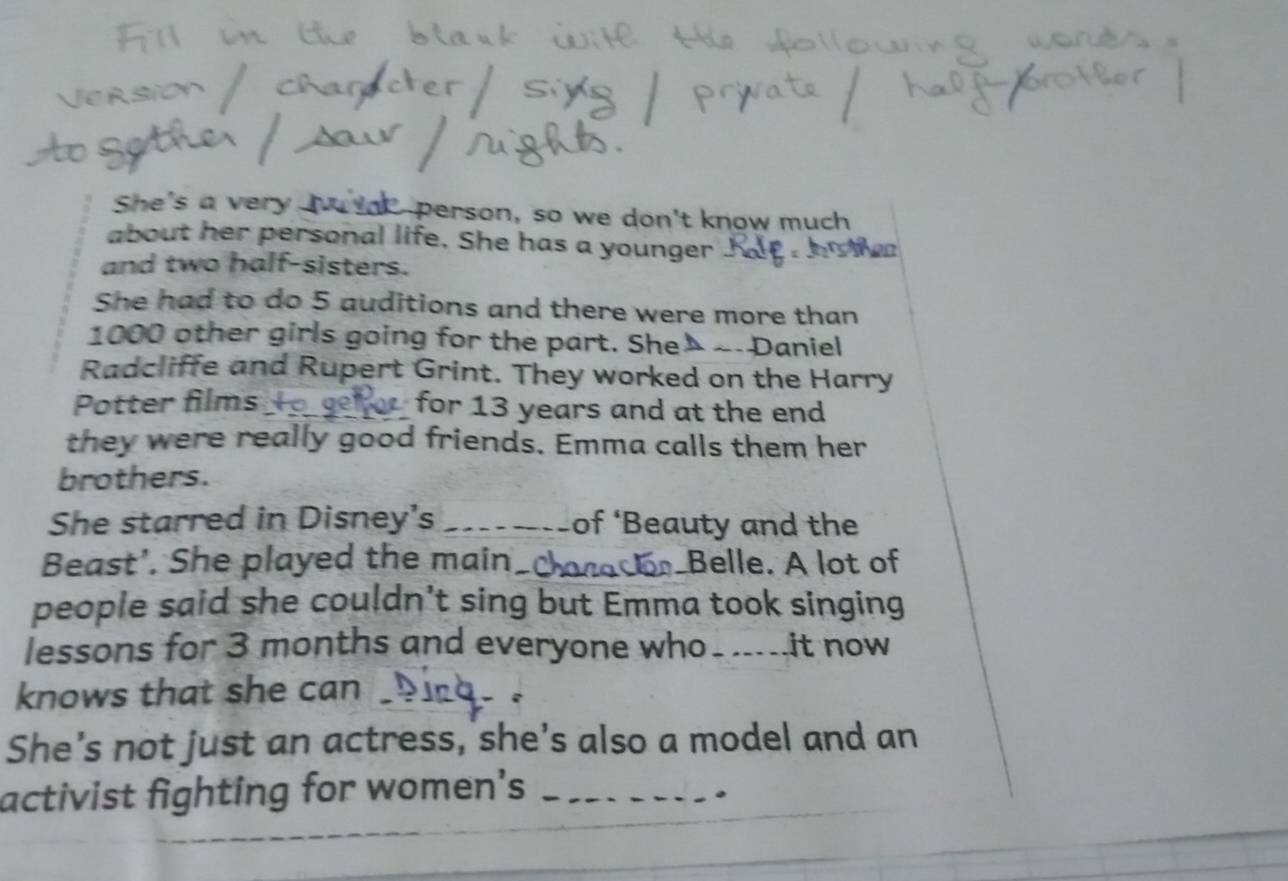 Fill in the blank with the following words.
version / character / sing / private / half-brother /
together / saw / rights.
She's a very private person, so we don't know much
about her personal life. She has a younger half-brother
and two half-sisters.
She had to do 5 auditions and there were more than
1000 other girls going for the part. She ---Daniel
Radcliffe and Rupert Grint. They worked on the Harry
Potter films to gether for 13 years and at the end
they were really good friends. Emma calls them her
brothers.
She starred in Disney's ---------of 'Beauty and the
Beast'. She played the main character Belle. A lot of
people said she couldn't sing but Emma took singing
lessons for 3 months and everyone who ------it now
knows that she can sing .
She's not just an actress, she's also a model and an
activist fighting for women's ---------.